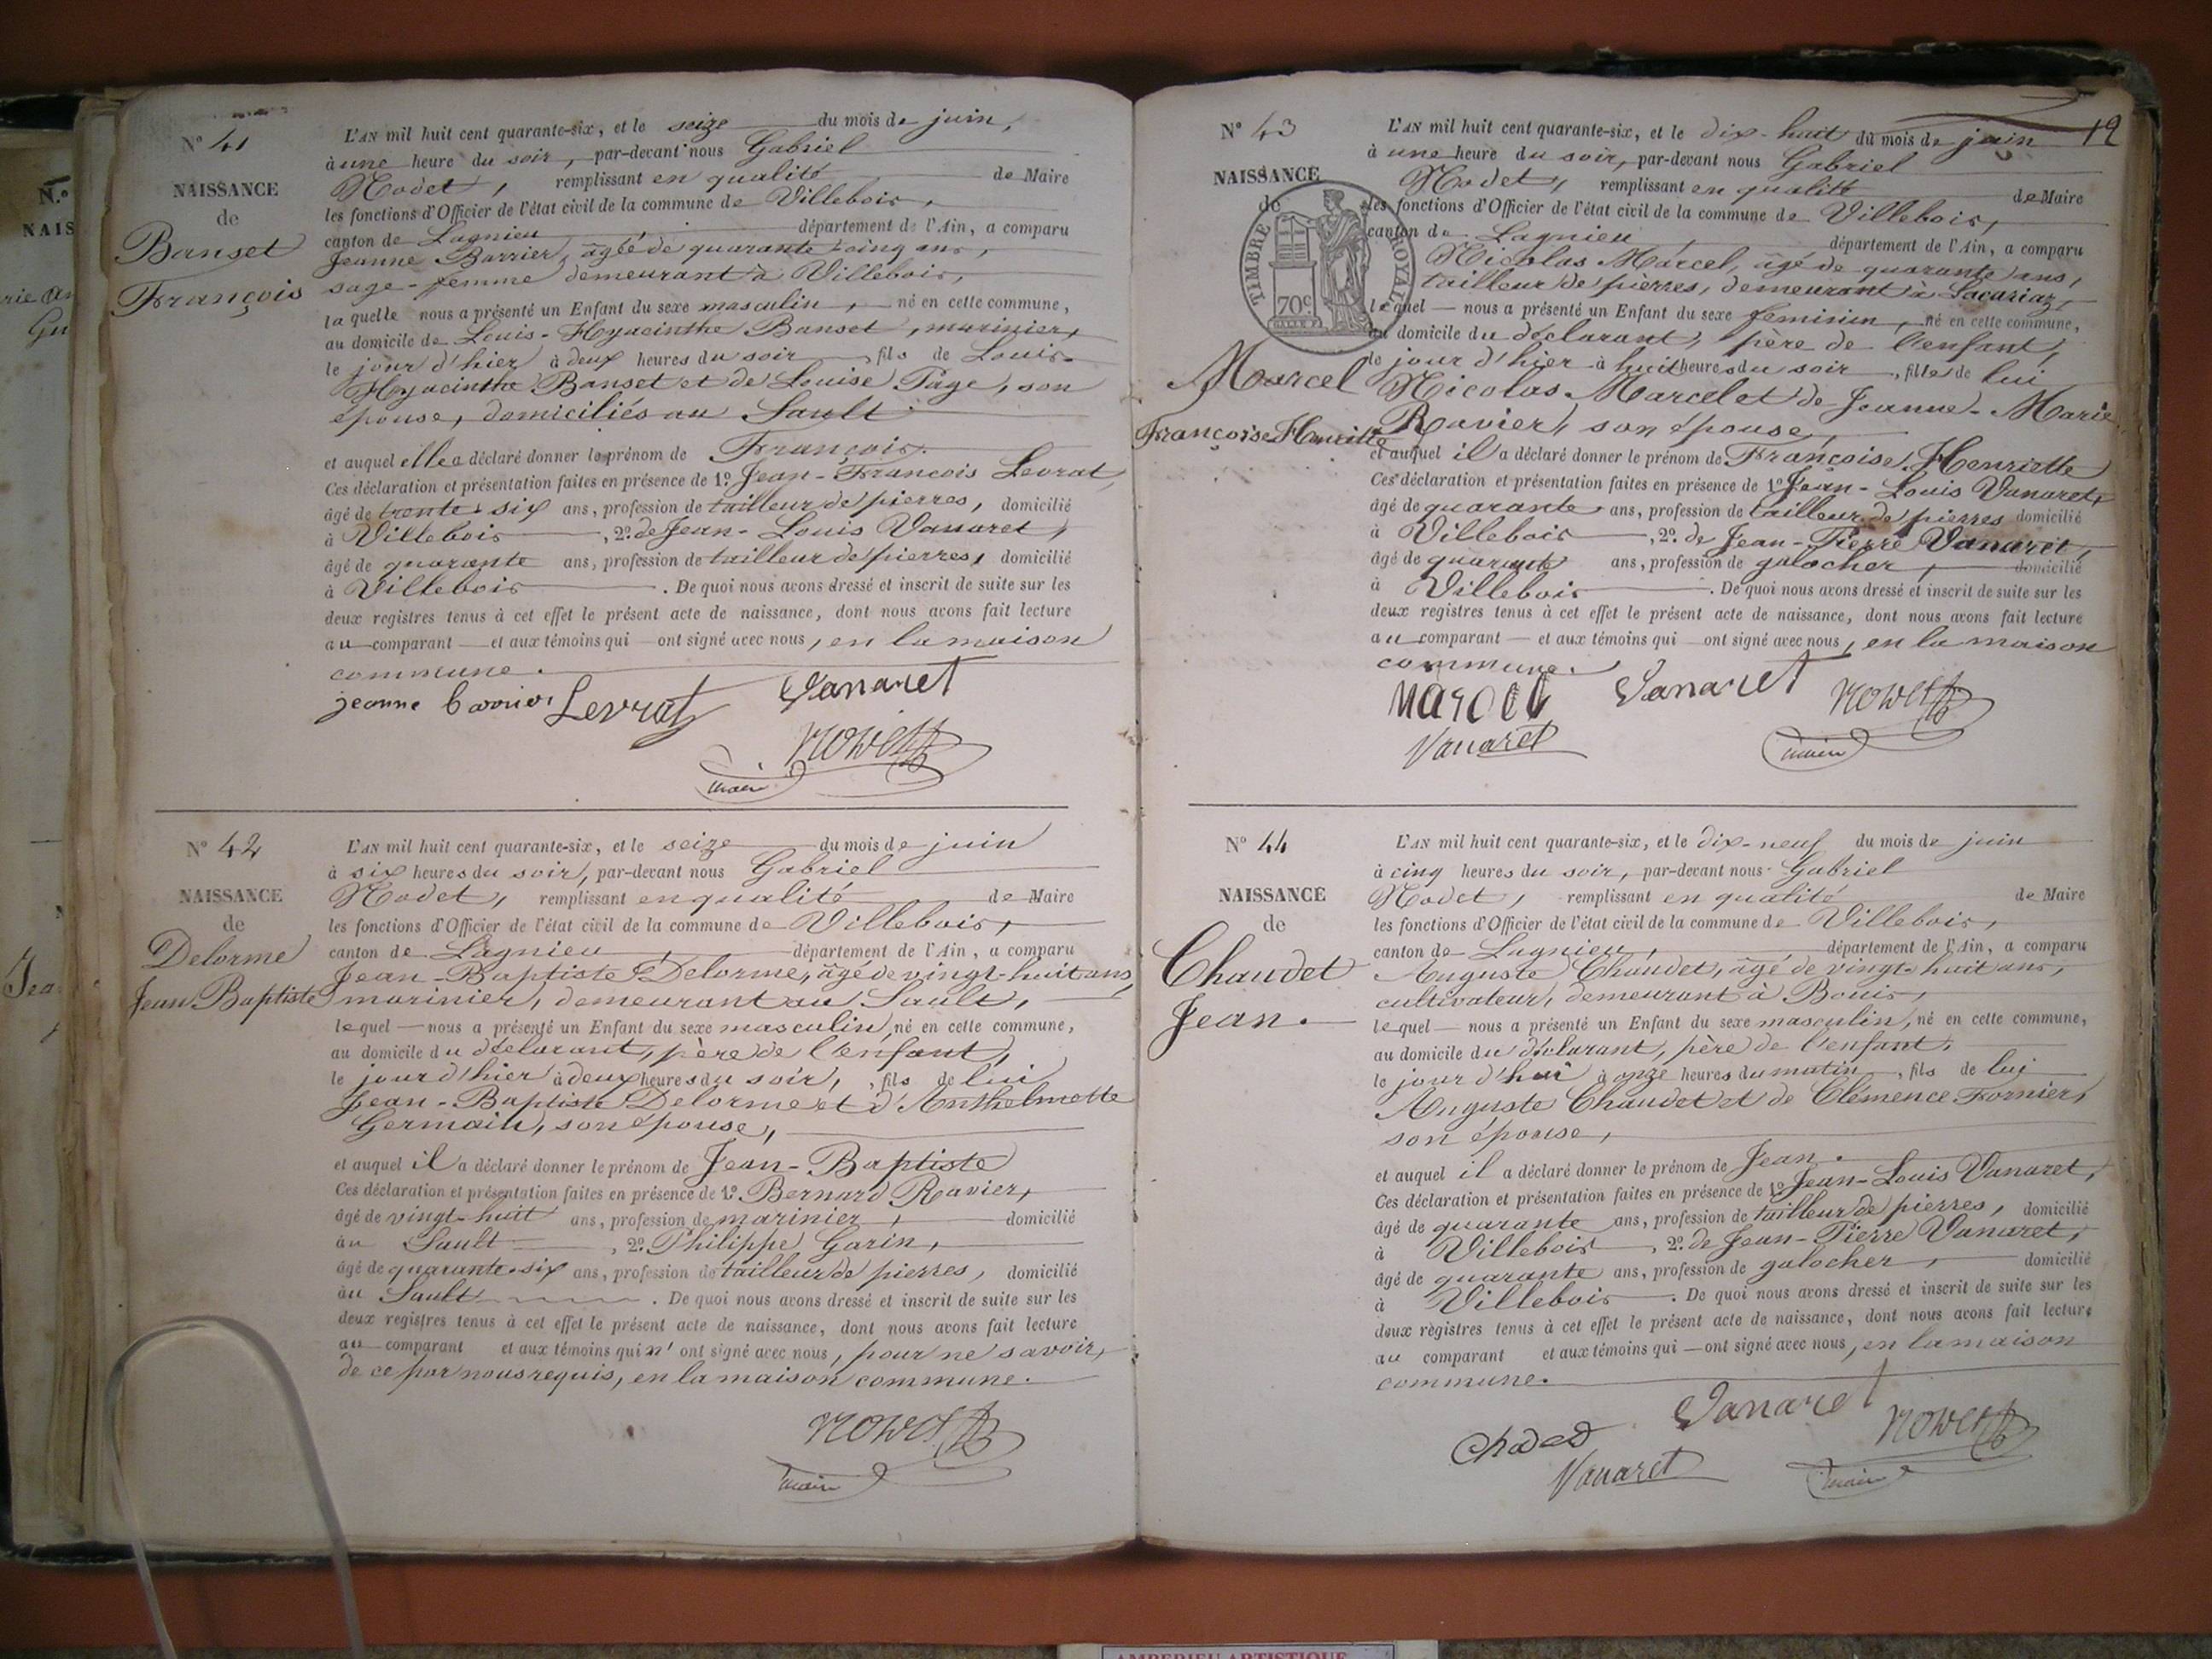 N° 41
NAISSANCE
de
Banset
François
L'AN mil huit cent quarante-six, et le seize du mois de juin,
à une heure du soir, par-devant nous Gabriel
Nodet, remplissant en qualité de Maire
les fonctions d'Officier de l'état civil de la commune de Villebois,
canton de Lagnieu, département de l'Ain, a comparu
Jeanne Barrier, âgée de quarante cinq ans,
sage-femme demeurant à Villebois,
laquelle nous a présenté un Enfant du sexe masculin, né en cette commune,
au domicile de Louis-Hyacinthe Banset, marinier,
le jour d'hier à deux heures du soir, fils de Louis-
Hyacinthe Banset et de Louise Page, son
épouse, domiciliés au Sault.
et auquel elle a déclaré donner le prénom de François.
Ces déclaration et présentation faites en présence de 1° Jean-François Levrat,
âgé de trente-six ans, profession de tailleur de pierres, domicilié
à Villebois, 2° de Jean-Louis Vanaret,
âgé de quarante ans, profession de tailleur de pierres, domicilié
à Villebois. De quoi nous avons dressé et inscrit de suite sur les
deux registres tenus à cet effet le présent acte de naissance, dont nous avons fait lecture
au comparant et aux témoins qui ont signé avec nous, en la maison
commune.
jeanne barrier Levrat Vanaret
maire
N° 42
NAISSANCE
de
Delorme
Jean Baptiste
L'AN mil huit cent quarante-six, et le seize du mois de juin
à six heures du soir, par-devant nous Gabriel
Nodet, remplissant en qualité de Maire
les fonctions d'Officier de l'état civil de la commune de Villebois,
canton de Lagnieu, département de l'Ain, a comparu
Jean-Baptiste Delorme, âgé de vingt-huit ans,
marinier, demeurant au Sault,
lequel nous a présenté un Enfant du sexe masculin, né en cette commune,
au domicile du déclarant, père de l'enfant,
le jour d'hier à deux heures du soir, fils de lui
Jean-Baptiste Delorme et d'Anthelmette
Germain, son épouse,
et auquel il a déclaré donner le prénom de Jean-Baptiste
Ces déclaration et présentation faites en présence de 1° Bernard Ravier,
âgé de vingt-huit ans, profession de marinier, domicilié
au Sault, 2° Philippe Garin,
âgé de quarante-six ans, profession de tailleur de pierres, domicilié
au Sault. De quoi nous avons dressé et inscrit de suite sur les
deux registres tenus à cet effet le présent acte de naissance, dont nous avons fait lecture
au comparant et aux témoins qui n'ont signé avec nous, pour ne savoir,
de ce par nous requis, en la maison commune.
maire
19
N° 43
NAISSANCE
de
TIMBRE ROYAL
70c
Marcel
Françoise Henriette
L'AN mil huit cent quarante-six, et le dix-huit du mois de juin
à une heure du soir, par-devant nous Gabriel
Nodet, remplissant en qualité de Maire
les fonctions d'Officier de l'état civil de la commune de Villebois,
canton de Lagnieu, département de l'Ain, a comparu
Nicolas Marcel, âgé de quarante ans,
tailleur de pierres, demeurant à Lacariaz,
lequel nous a présenté un Enfant du sexe féminin, né en cette commune,
au domicile du déclarant, père de l'enfant,
le jour d'hier à huit heures du soir, fille de lui
Nicolas Marcel et de Jeanne-Marie
Ravier, son épouse,
et auquel il a déclaré donner le prénom de Françoise Henriette
Ces déclaration et présentation faites en présence de 1° Jean-Louis Vanaret,
âgé de quarante ans, profession de tailleur de pierres domicilié
à Villebois, 2° de Jean-Pierre Vanaret,
âgé de quarante ans, profession de galocher, domicilié
à Villebois. De quoi nous avons dressé et inscrit de suite sur les
deux registres tenus à cet effet le présent acte de naissance, dont nous avons fait lecture
au comparant et aux témoins qui ont signé avec nous, en la maison
commune.
Marcel Vanaret
Vanaret maire
N° 44
NAISSANCE
de
Chaudet
Jean.
L'AN mil huit cent quarante-six, et le dix-neuf du mois de juin
à cinq heures du soir, par-devant nous Gabriel
Nodet, remplissant en qualité de Maire
les fonctions d'Officier de l'état civil de la commune de Villebois,
canton de Lagnieu, département de l'Ain, a comparu
Auguste Chaudet, âgé de vingt-huit ans,
cultivateur, demeurant à Bouis,
lequel nous a présenté un Enfant du sexe masculin, né en cette commune,
au domicile du déclarant, père de l'enfant,
le jour d'hui à onze heures du matin, fils de lui
Auguste Chaudet et de Clémence Fornier,
son épouse,
et auquel il a déclaré donner le prénom de Jean.
Ces déclaration et présentation faites en présence de 1° Jean-Louis Vanaret,
âgé de quarante ans, profession de tailleur de pierres, domicilié
à Villebois, 2° de Jean-Pierre Vanaret,
âgé de quarante ans, profession de galocher, domicilié
à Villebois. De quoi nous avons dressé et inscrit de suite sur les
deux registres tenus à cet effet le présent acte de naissance, dont nous avons fait lecture
au comparant et aux témoins qui ont signé avec nous, en la maison
commune.
Vanaret
Chaded
Vanaret maire
AMBERIEU ARTISTIQUE